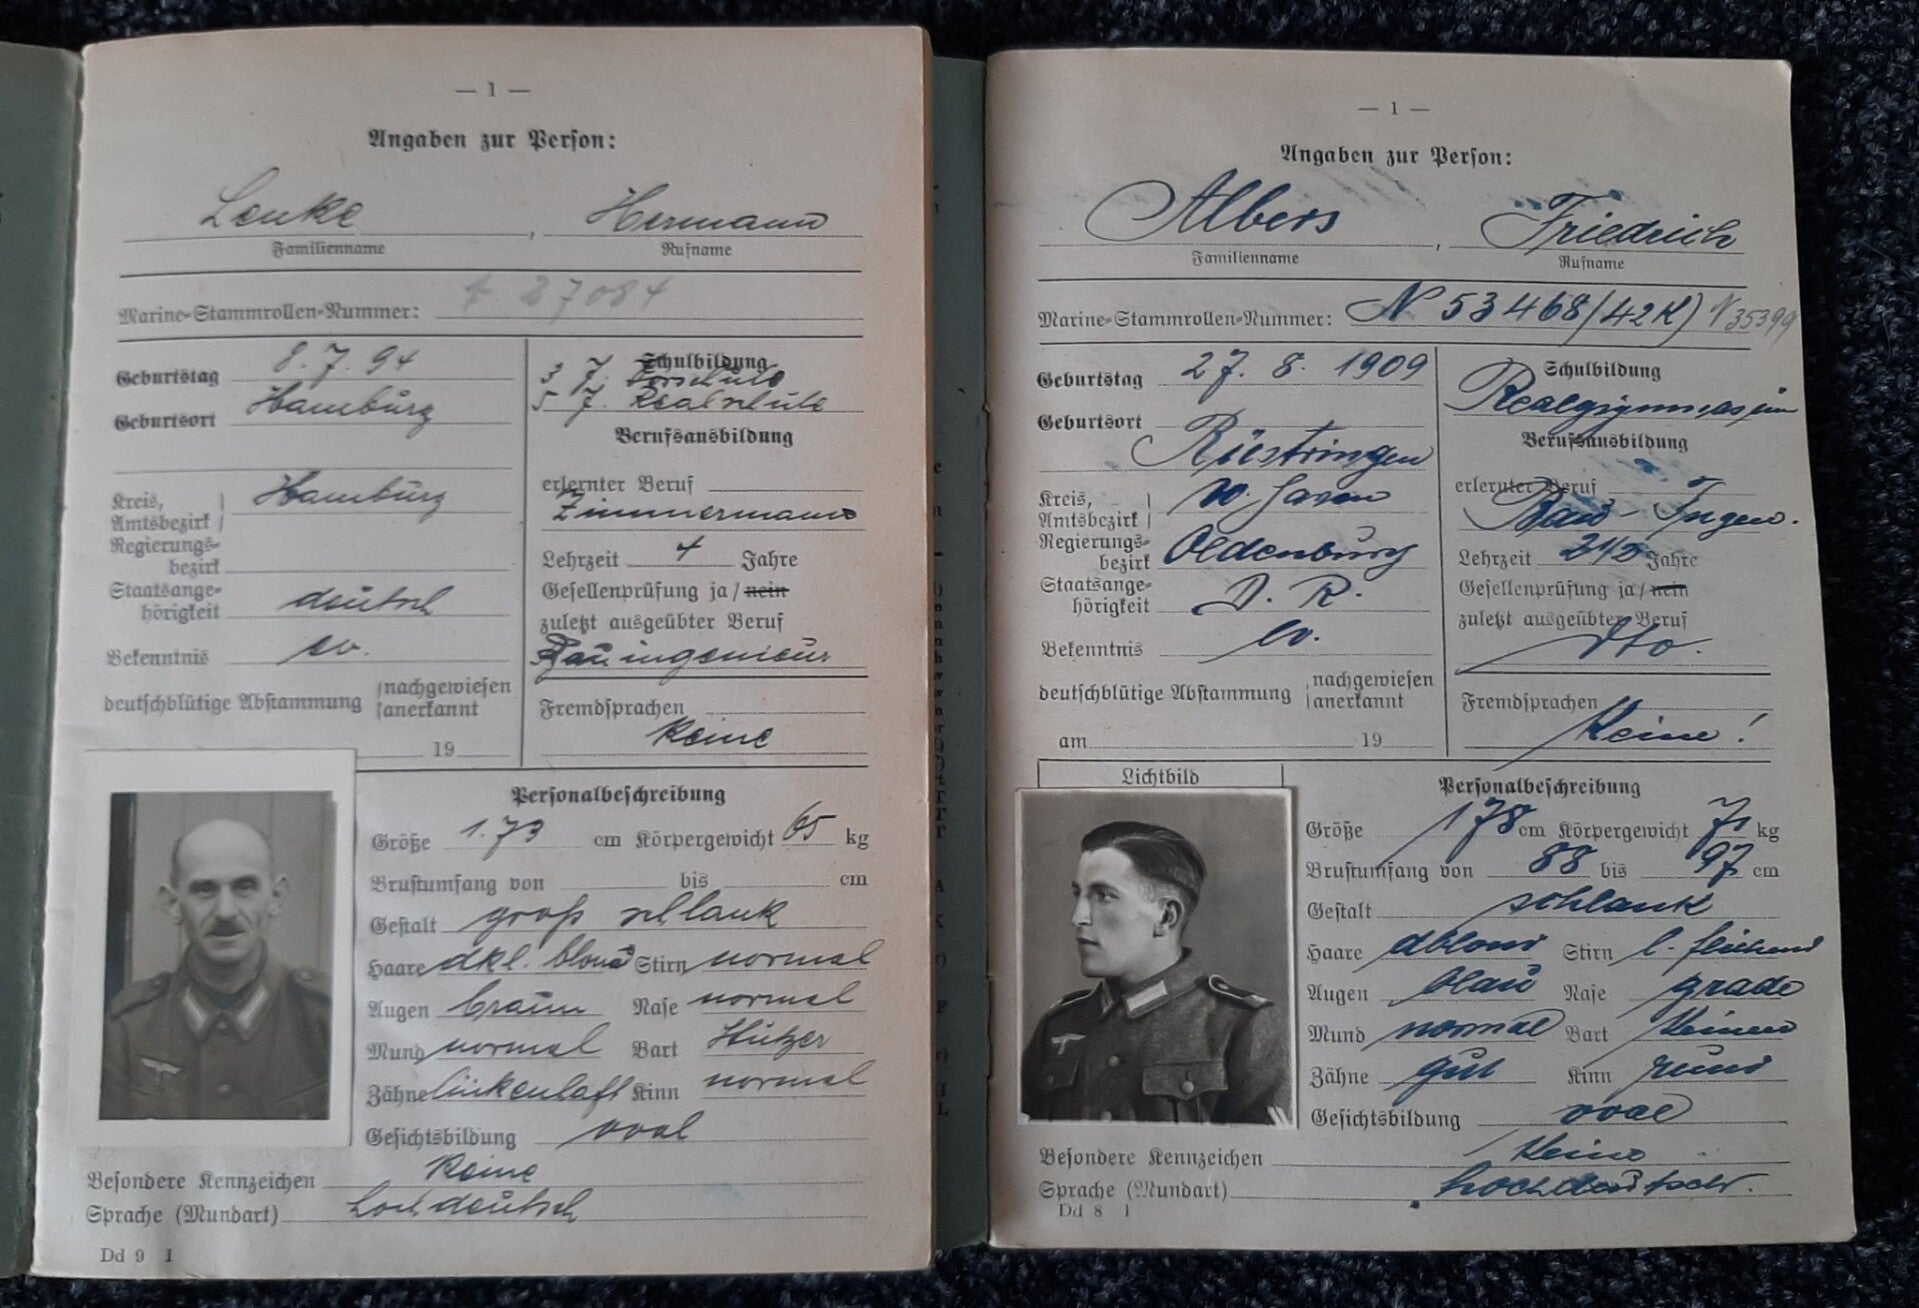 — 1 —
Angaben zur Person:
Lenke, Hermann
Familienname Rufname
Marine-Stammrollen-Nummer: 27084
Geburtstag 8.7.94
Geburtsort Hamburg
Kreis, Amtsbezirk Hamburg
Regierungsbezirk
Staatsangehörigkeit deutsch
Bekenntnis ev.
deutschblütige Abstammung nachgewiesen
anerkannt
19
Schulbildung
3 J. Vorschule
5 J. Realschule
Berufsausbildung
erlernter Beruf
Zimmermann
Lehrzeit 4 Jahre
Gesellenprüfung ja/nein
zuletzt ausgeübter Beruf
Bauingenieur
Fremdsprachen
Keine
Personalbeschreibung
Größe 1.73 cm Körpergewicht 65 kg
Brustumfang von bis cm
Gestalt groß schlank
Haare dkl. blond Stirn normal
Augen braun Nase normal
Mund normal Bart Stutzer
Zähne lückenhaft Kinn normal
Gesichtsbildung oval
Besondere Kennzeichen Keine
Sprache (Mundart) hochdeutsch
Dd 9 I
— 1 —
Angaben zur Person:
Albers, Friedrich
Familienname Rufname
Marine-Stammrollen-Nummer: N 53468/42K)
Geburtstag 27. 8. 1909
Geburtsort
Rüstringen
Kreis, Amtsbezirk
Regierungsbezirk Oldenburg
Staatsangehörigkeit D. R.
Bekenntnis ev.
deutschblütige Abstammung nachgewiesen
anerkannt
am 19
Schulbildung
Realgymnasium
Berufsausbildung
erlernter Beruf
Bau-Ingen.
Lehrzeit Jahre
Gesellenprüfung ja/nein
zuletzt ausgeübter Beruf
dto.
Fremdsprachen
Keine!
Lichtbild
Personalbeschreibung
Größe 178 cm Körpergewicht 71 kg
Brustumfang von 88 bis 97 cm
Gestalt schlank
Haare dblond Stirn l. fliehend
Augen blau Nase grade
Mund normal Bart Keinen
Zähne gut Kinn rund
Gesichtsbildung oval
Besondere Kennzeichen Keine
Sprache (Mundart) hochdeutsch.
Dd 8 I